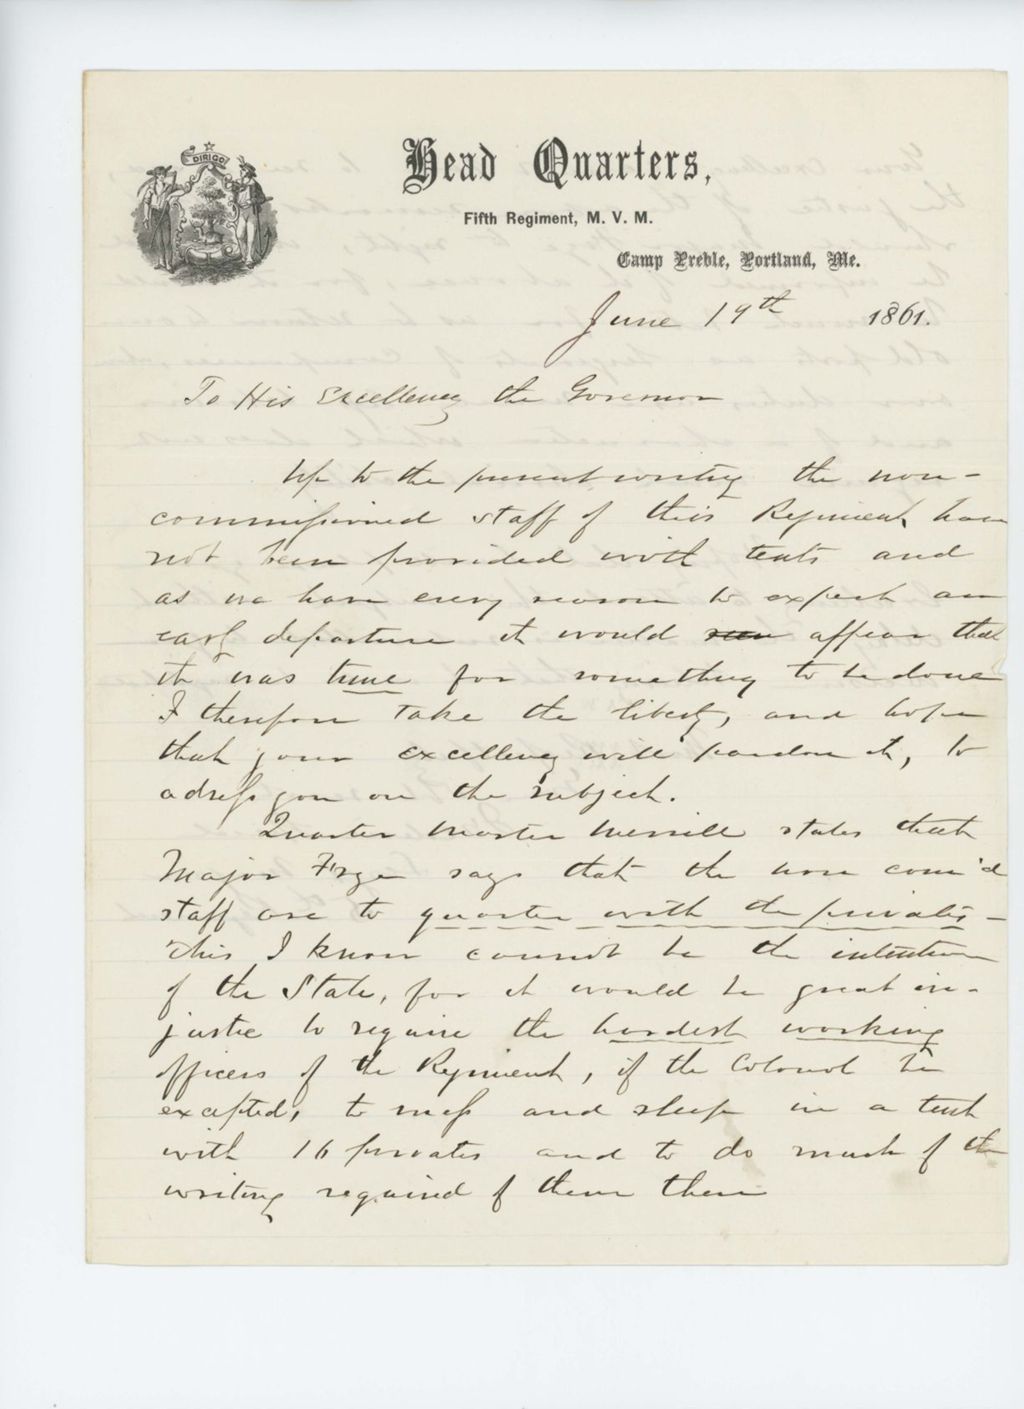 DIRIGO
Head Quarters,
Fifth Regiment, M. V. M.
Camp Preble, Portland, Me.
June 19th 1861.
To His Excellency the Governor
Up to the present writing the non-
commissioned staff of this Regiment have
not been provided with tents and
as we have every reason to expect an
early departure it would appear that
it was time for something to be done
I therefore take the liberty, and hope
that your excellency will pardon it, to
adress you on the subject.
Quarter Master Merrill states that
Major Frye says that the non com'd
staff are to quarter with the privates -
This I know cannot be the intention
of the State, for it would be great in-
justice to require the hardest working
officers of the Regiment, if the Colonel be
excepted, to mess and sleep in a tent
with 16 privates and to do much of the
writing required of them there